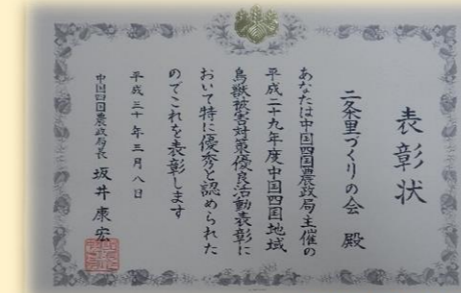 表彰状
二条里づくりの会 殿
あなたは中国四国農政局主催の
平成二十九年度中国四国地域
鳥獣被害対策優良活動表彰に
おいて特に優秀と認められた
のでこれを表彰します
平成三十年三月八日
中国四国農政局長 坂井康宏